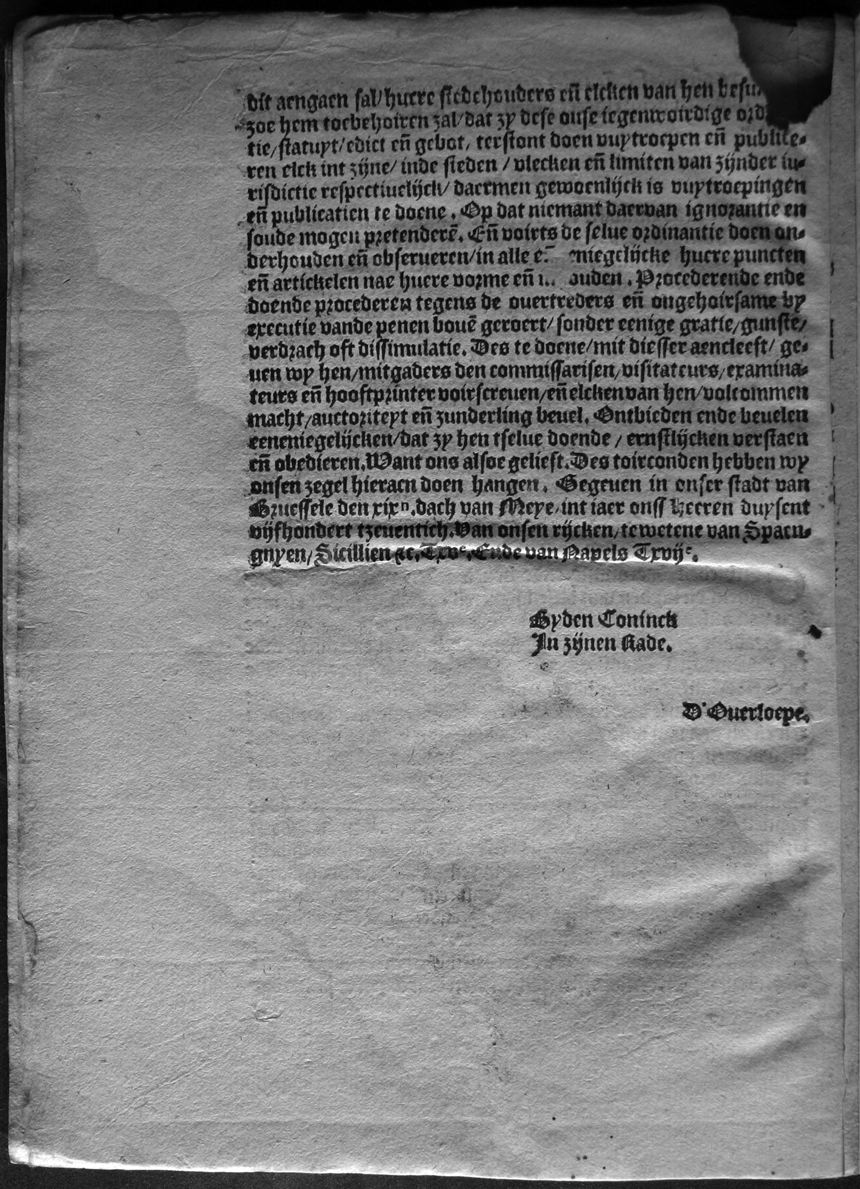 dit aengaen sal/ huere stedehouders eñ elcken van hen
zoe hem toebehoiren zal/ dat zy dese onse iegenwoirdige
tie/ statuyt/ edict eñ gebot/ terstont doen vuytroepen eñ publice-
ren elck int zijne/ inde steden / vlecken eñ limiten van zijnder iu-
risdictie respectiuelijck/ daermen gewoenlijck is vuytroepingen
eñ publicatien te doene . Op dat niemant daervan ignorantie en
soude mogen pretenderē. Eñ voirts de selue ordinantie doen on-
derhouden eñ obserueren/ in alle niegelijcke huere puncten
eñ artickelen nae huere vorme eñ ouden . Procederende ende
doende procederen tegens de ouertreders eñ ongehoirsame by
executie vande penen bouē geroert/ sonder eenige gratie/ gunste/
verdrach oft dissimulatie. Des te doene/ mit diesser aencleeft/ ge-
uen wy hen/ mitgaders den commissarisen/ visitateurs/ examina-
teurs eñ hooftprinter voirscreuen/ eñ elcken van hen/ volcommen
macht/ auctoriteyt eñ zunderling beuel. Ontbieden ende beuelen
eeneniegelijcken/ dat zy hen tselue doende / ernstlijcken verstaen
eñ obedieren. Want ons alsoe gelieft. Des toirconden hebben wy
onsen zegel hieraen doen hangen . Gegeuen in onser stadt van
Bruessele den xixⁿ. dach van Meye/ int iaer onss heeren duysent
vijfhondert tzeuentich. Van onsen rijcken/ te wetene van Spaen-
gnyen/ Sicillien ⁊c. Txvᵉ. Ende van Napels Txvijᵉ.
By den Coninck
In zijnen Rade.
D'Ouerloepe.